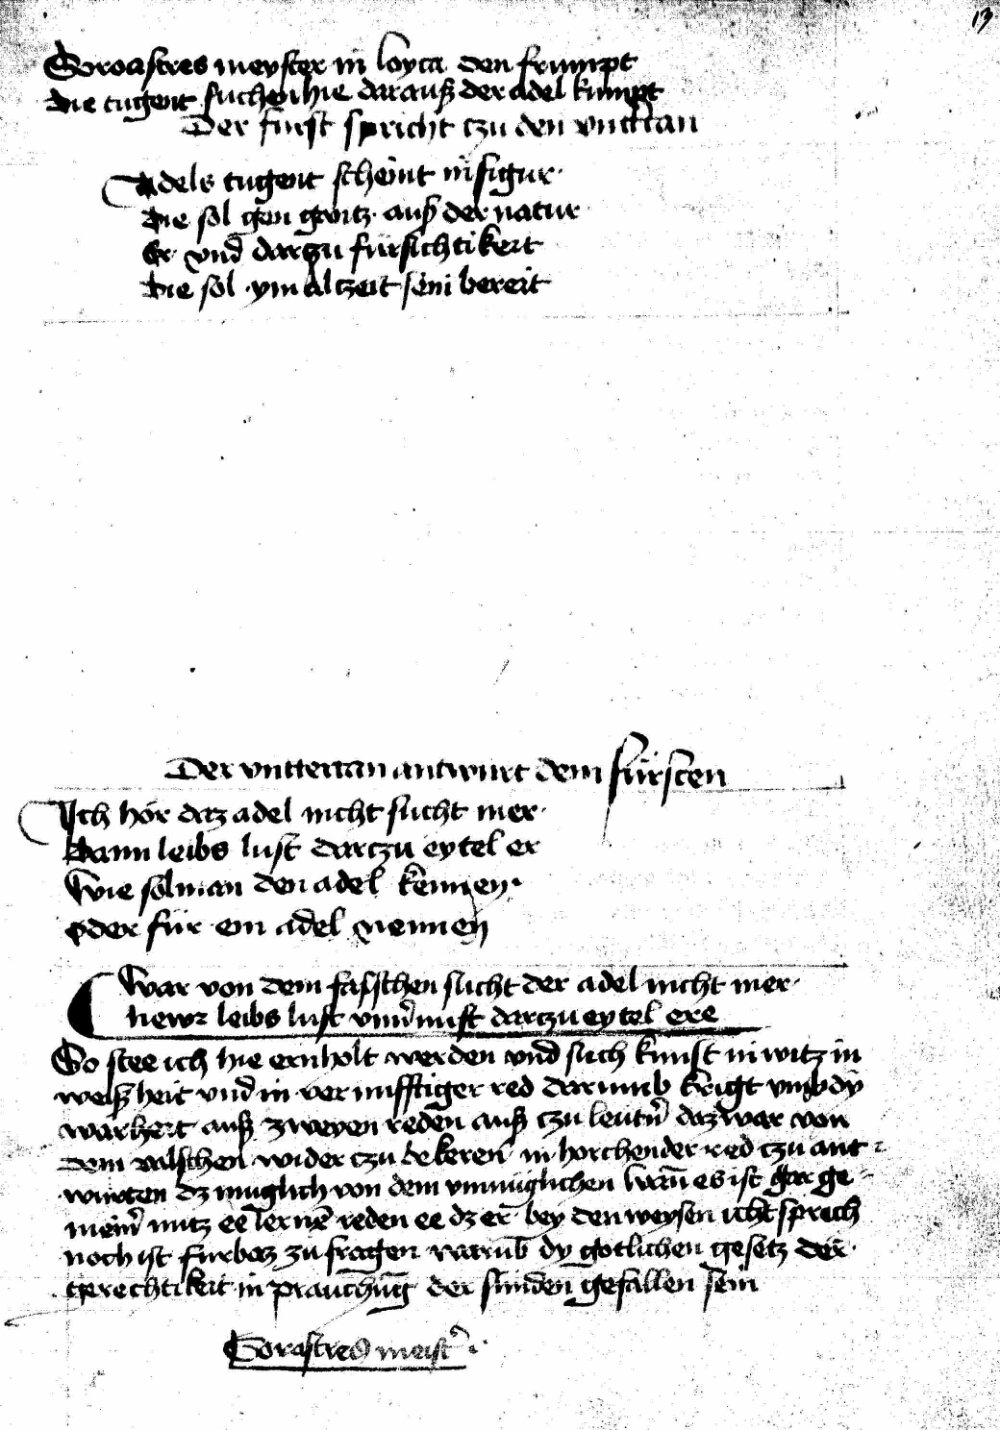 13
Soroastres meyster in loyca den frumpt
Die tugent suchen hie darauß der adel kumpt
Der furst spricht czu den vnttertan
Adels tugent scheint in figur
Die sol gen gantz auß der natur
Er vnd darczu fursichtikeit
Die sol ym alczeit sein bereit
Der vnttertan antwurt dem fürsten
Ich hör daz adel nicht sucht mer
Dann leibs lust darczu eytel er
Wie sol man den adel kennen
oder für ein adel nennen
War von dem falschen sucht der adel nicht mer
newr leibs lust vnd darczu eytel ere
So stee ich hie ernholt werden vnd such kunst in witz in
weißheit vnd in vernufftiger red darumb krigt vmb dy
warheit auß zweyen reden auß czu leutn̄ daz war von
dem valschen wider czu bekeren in horchender red czu ant
wurten dz muglich von dem vnmuglichen wan̄ es ist gar ge
mein̄ nutz ee lerne̅ reden ee dz er bey den weysen icht sprech
noch ist furbaz zu fragen warūb dy gotlichen gesetz der
gerechtikeit in prauchūg der sunden gefallen sein
Sorastres meist̓